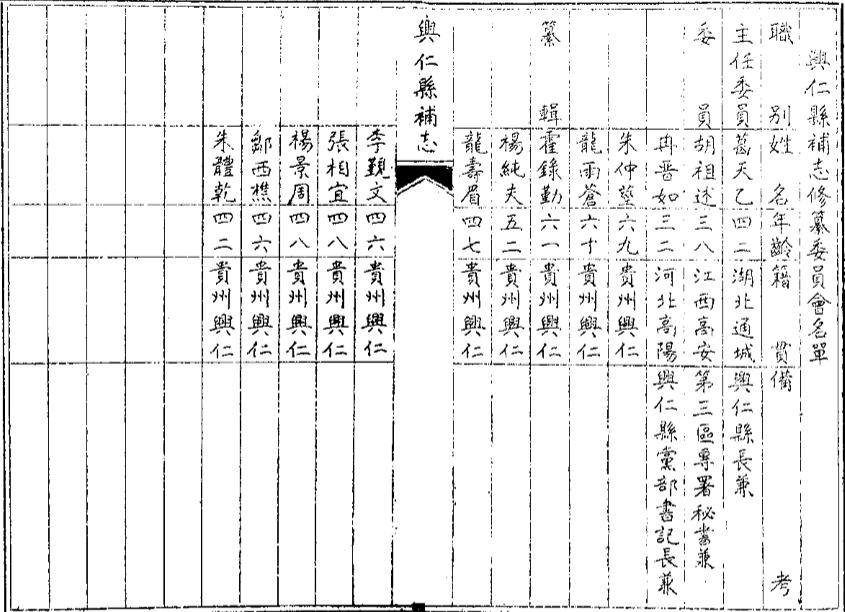 興仁縣補志修纂委員會名單
職別 姓名 年齡 籍貫 備考
主任委員 葛天乙 四二 湖北通城 興仁縣長兼
委員 胡祖述 三八 江西高安 第三區專署秘書兼
冉晋如 三二 河北高陽 興仁縣黨部書記長兼
朱仲堃 六九 貴州興仁
龍雨蒼 六十 貴州興仁
纂輯 霍錄勤 六一 貴州興仁
楊純夫 五二 貴州興仁
龍壽眉 四七 貴州興仁
興仁縣補志
李觀文 四六 貴州興仁
張相宜 四八 貴州興仁
楊景周 四八 貴州興仁
鄒西樵 四六 貴州興仁
朱體乾 四二 貴州興仁